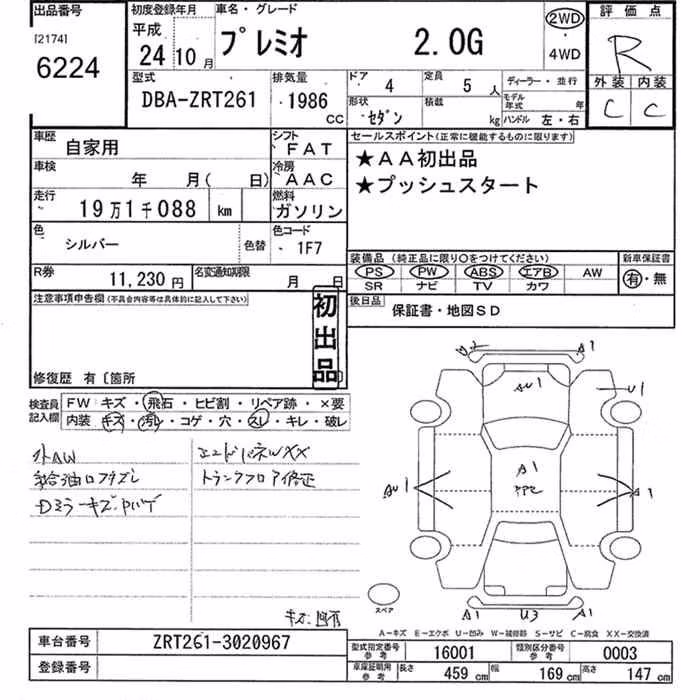 出品番号
[2174]
6224
初度登録年月
平成
24 10 月
車名・グレード
プレミオ 2.0G
2WD
・
4WD
評価点
R
外装 内装
C C
型式
DBA-ZRT261
排気量
1986
CC
ドア
4
定員
5 人
ディーラー・並行
形状
セダン
積載
kg
モデル年式
年
ハンドル 左・右
車歴
自家用
シフト
FAT
車検
年 月( 日)
冷房
AAC
走行
19万1千088 km
燃料
ガソリン
色
シルバー
色替
色コード
1F7
R券
11,230 円
名変通知期限
月 日
セールスポイント(正常に機能するものに限ります)
★AA初出品
★プッシュスタート
装備品(純正品に限り○をつけてください)
PS PW ABS エアB AW
SR ナビ TV カワ
新車保証書
有・無
後日品
保証書・地図SD
注意事項申告欄(不具合内容等は具体的に記入して下さい)
初出品
修復歴 有〔箇所
検査員
記入欄
FW キズ・飛石・ヒビ割・リペア跡・×要
内装 キズ・汚れ・コゲ・穴・スレ・キレ・破レ
外AW
給油口フタズレ
Dミラーキズ
エンドパネルXX
トランクフロア修正
A1
AU1
U1
A1
AU1
A1
A1
U3
A1
スペア
A-キズ E-エクボ U-凹み W-補修跡 S-サビ C-腐食 XX-交換済
車台番号
ZRT261-3020967
登録番号
型式指定番号
参考
16001
類別区分番号
参考
0003
車庫証明用
参考
長さ
459 cm
幅
169 cm
高さ
147 cm